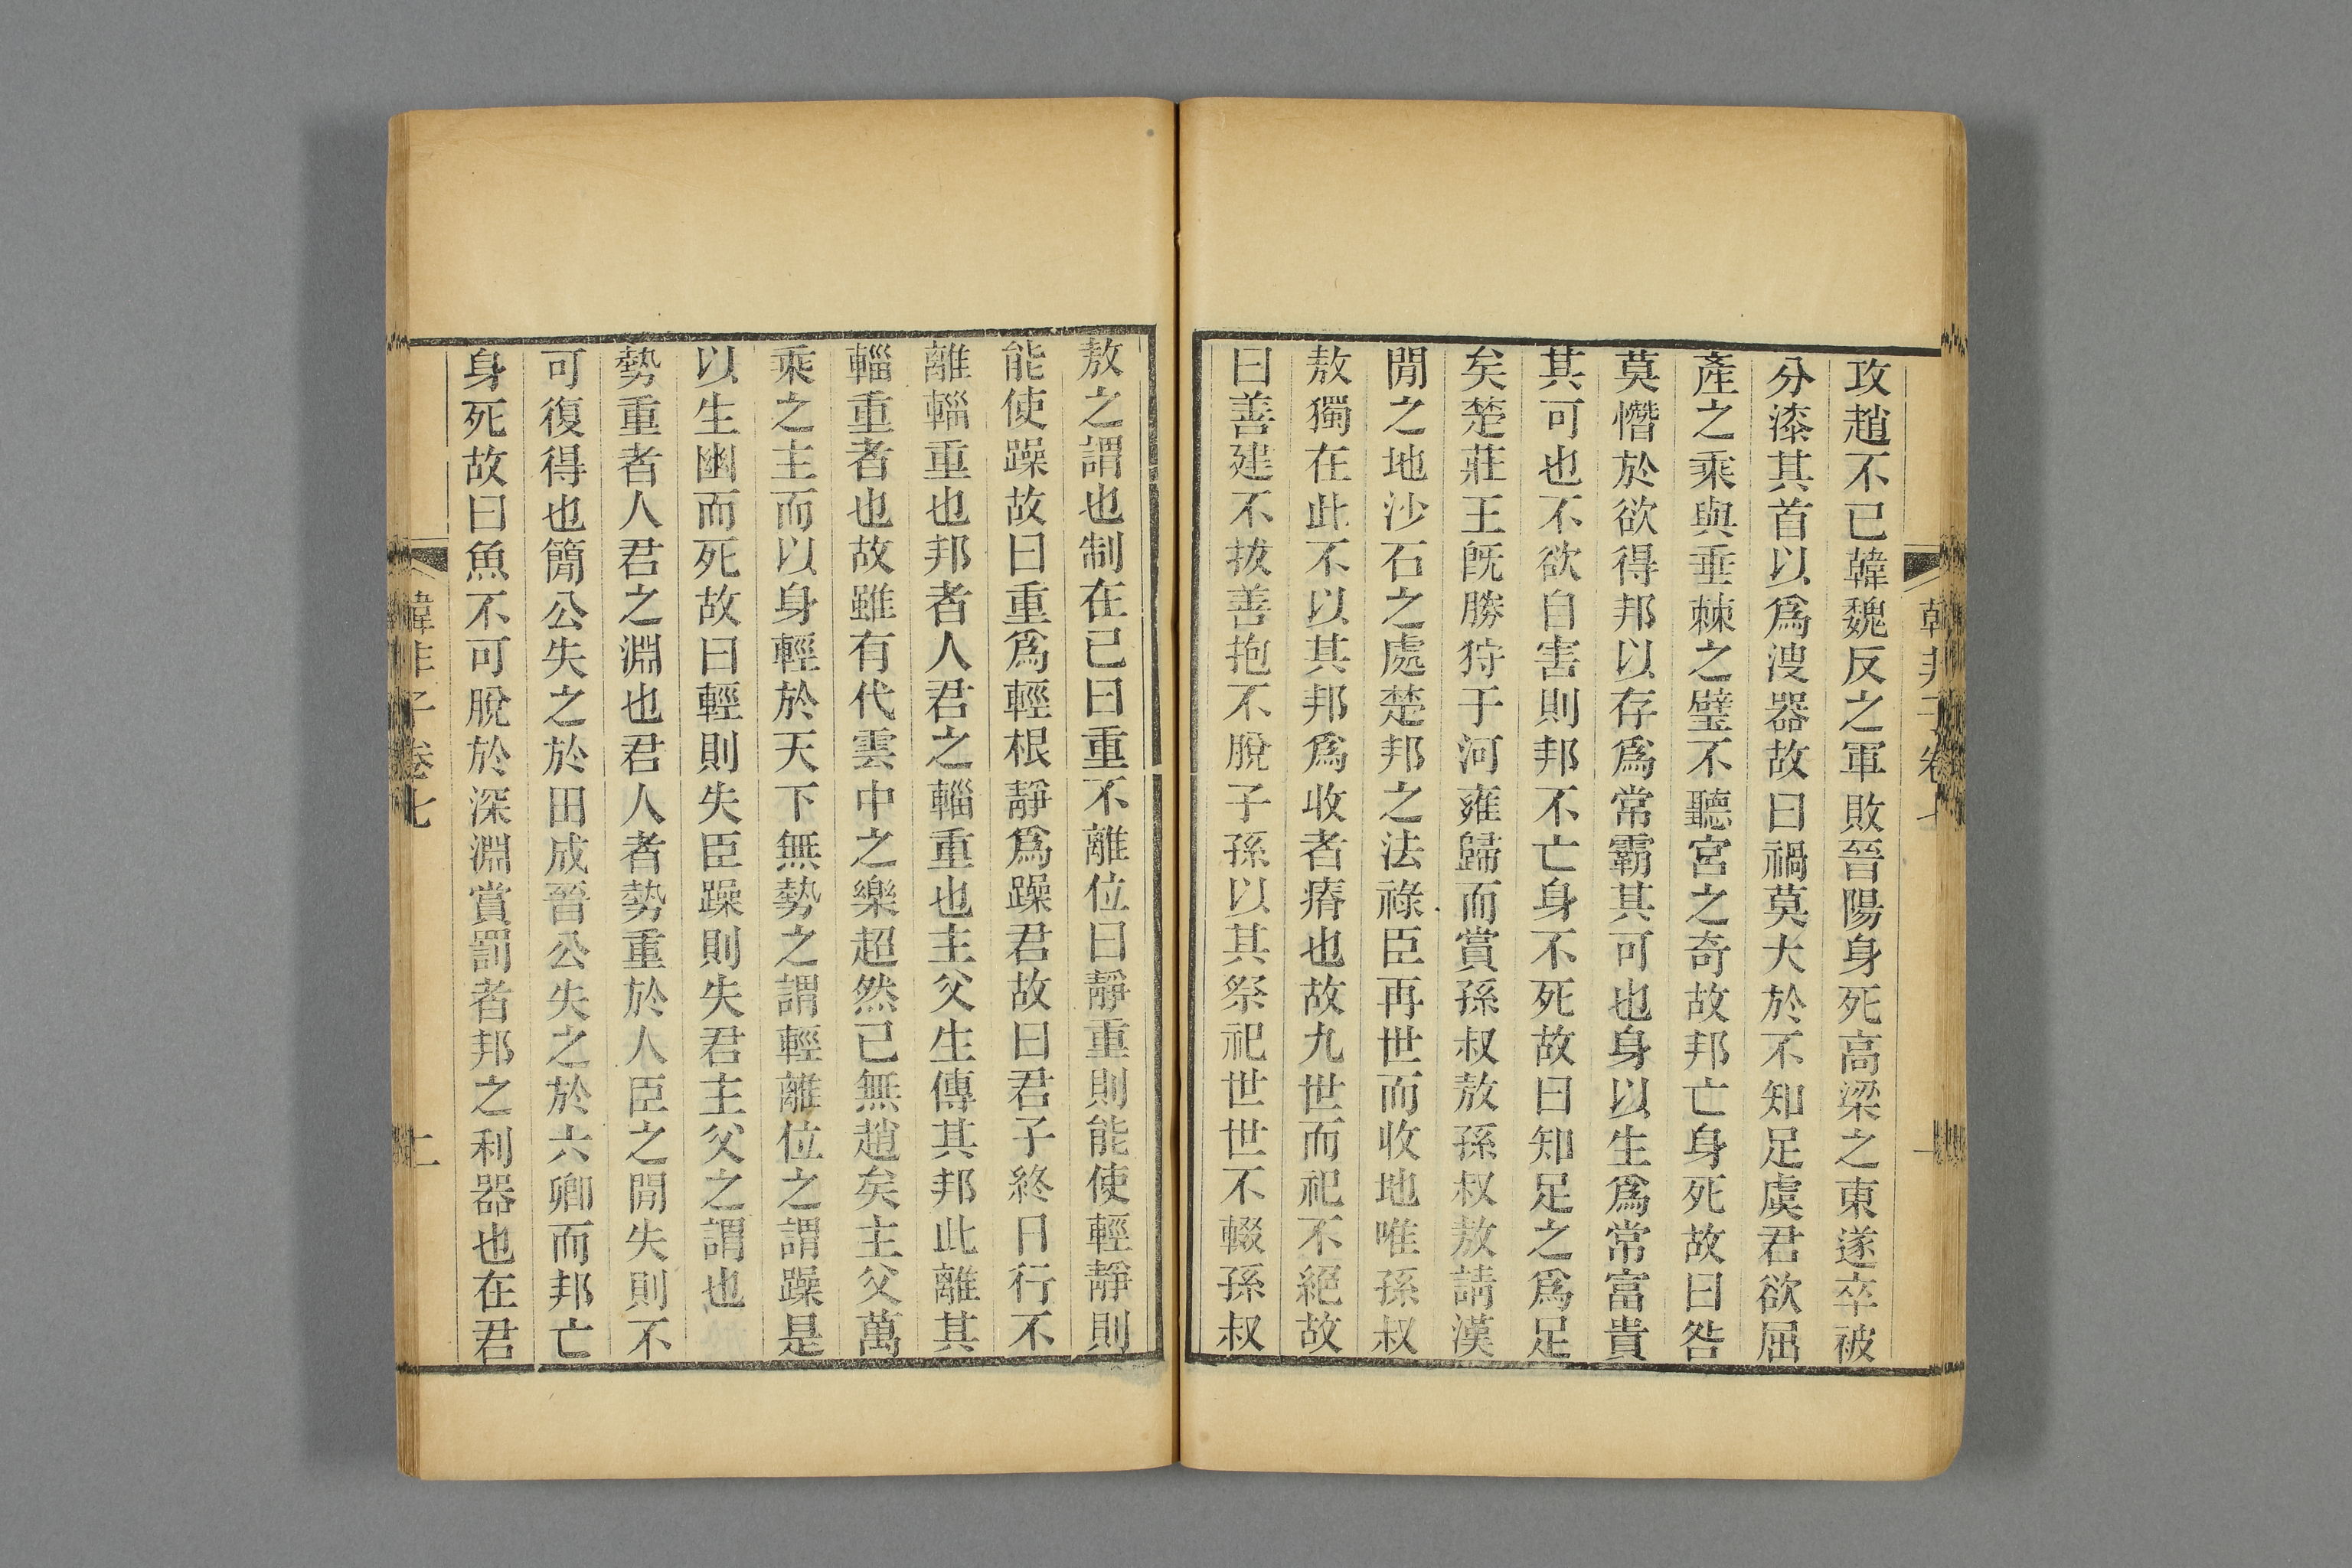 韓非子卷七
攻趙不已韓魏反之軍敗晉陽身死高梁之東遂卒被
分漆其首以爲溲器故曰禍莫大於不知足虞君欲屈
產之乘與垂棘之璧不聽宮之奇故邦亡身死故曰咎
莫憯於欲得邦以存爲常霸其可也身以生爲常富貴
其可也不欲自害則邦不亡身不死故曰知足之爲足
矣楚莊王旣勝狩于河雍歸而賞孫叔敖孫叔敖請漢
閒之地沙石之處楚邦之法祿臣再世而收地唯孫叔
敖獨在此不以其邦爲收者瘠也故九世而祀不絕故
曰善建不拔善抱不脫子孫以其祭祀世世不輟孫叔
敖之謂也制在已曰重不離位曰靜重則能使輕靜則
能使躁故曰重爲輕根靜爲躁君故曰君子終日行不
離輜重也邦者人君之輜重也主父生傳其邦此離其
輜重者也故雖有代雲中之樂超然已無趙矣主父萬
乘之主而以身輕於天下無勢之謂輕離位之謂躁是
以生幽而死故曰輕則失臣躁則失君主父之謂也
勢重者人君之淵也君人者勢重於人臣之閒失則不
可復得也簡公失之於田成晉公失之於六卿而邦亡
身死故曰魚不可脫於深淵賞罰者邦之利器也在君
韓非子卷七